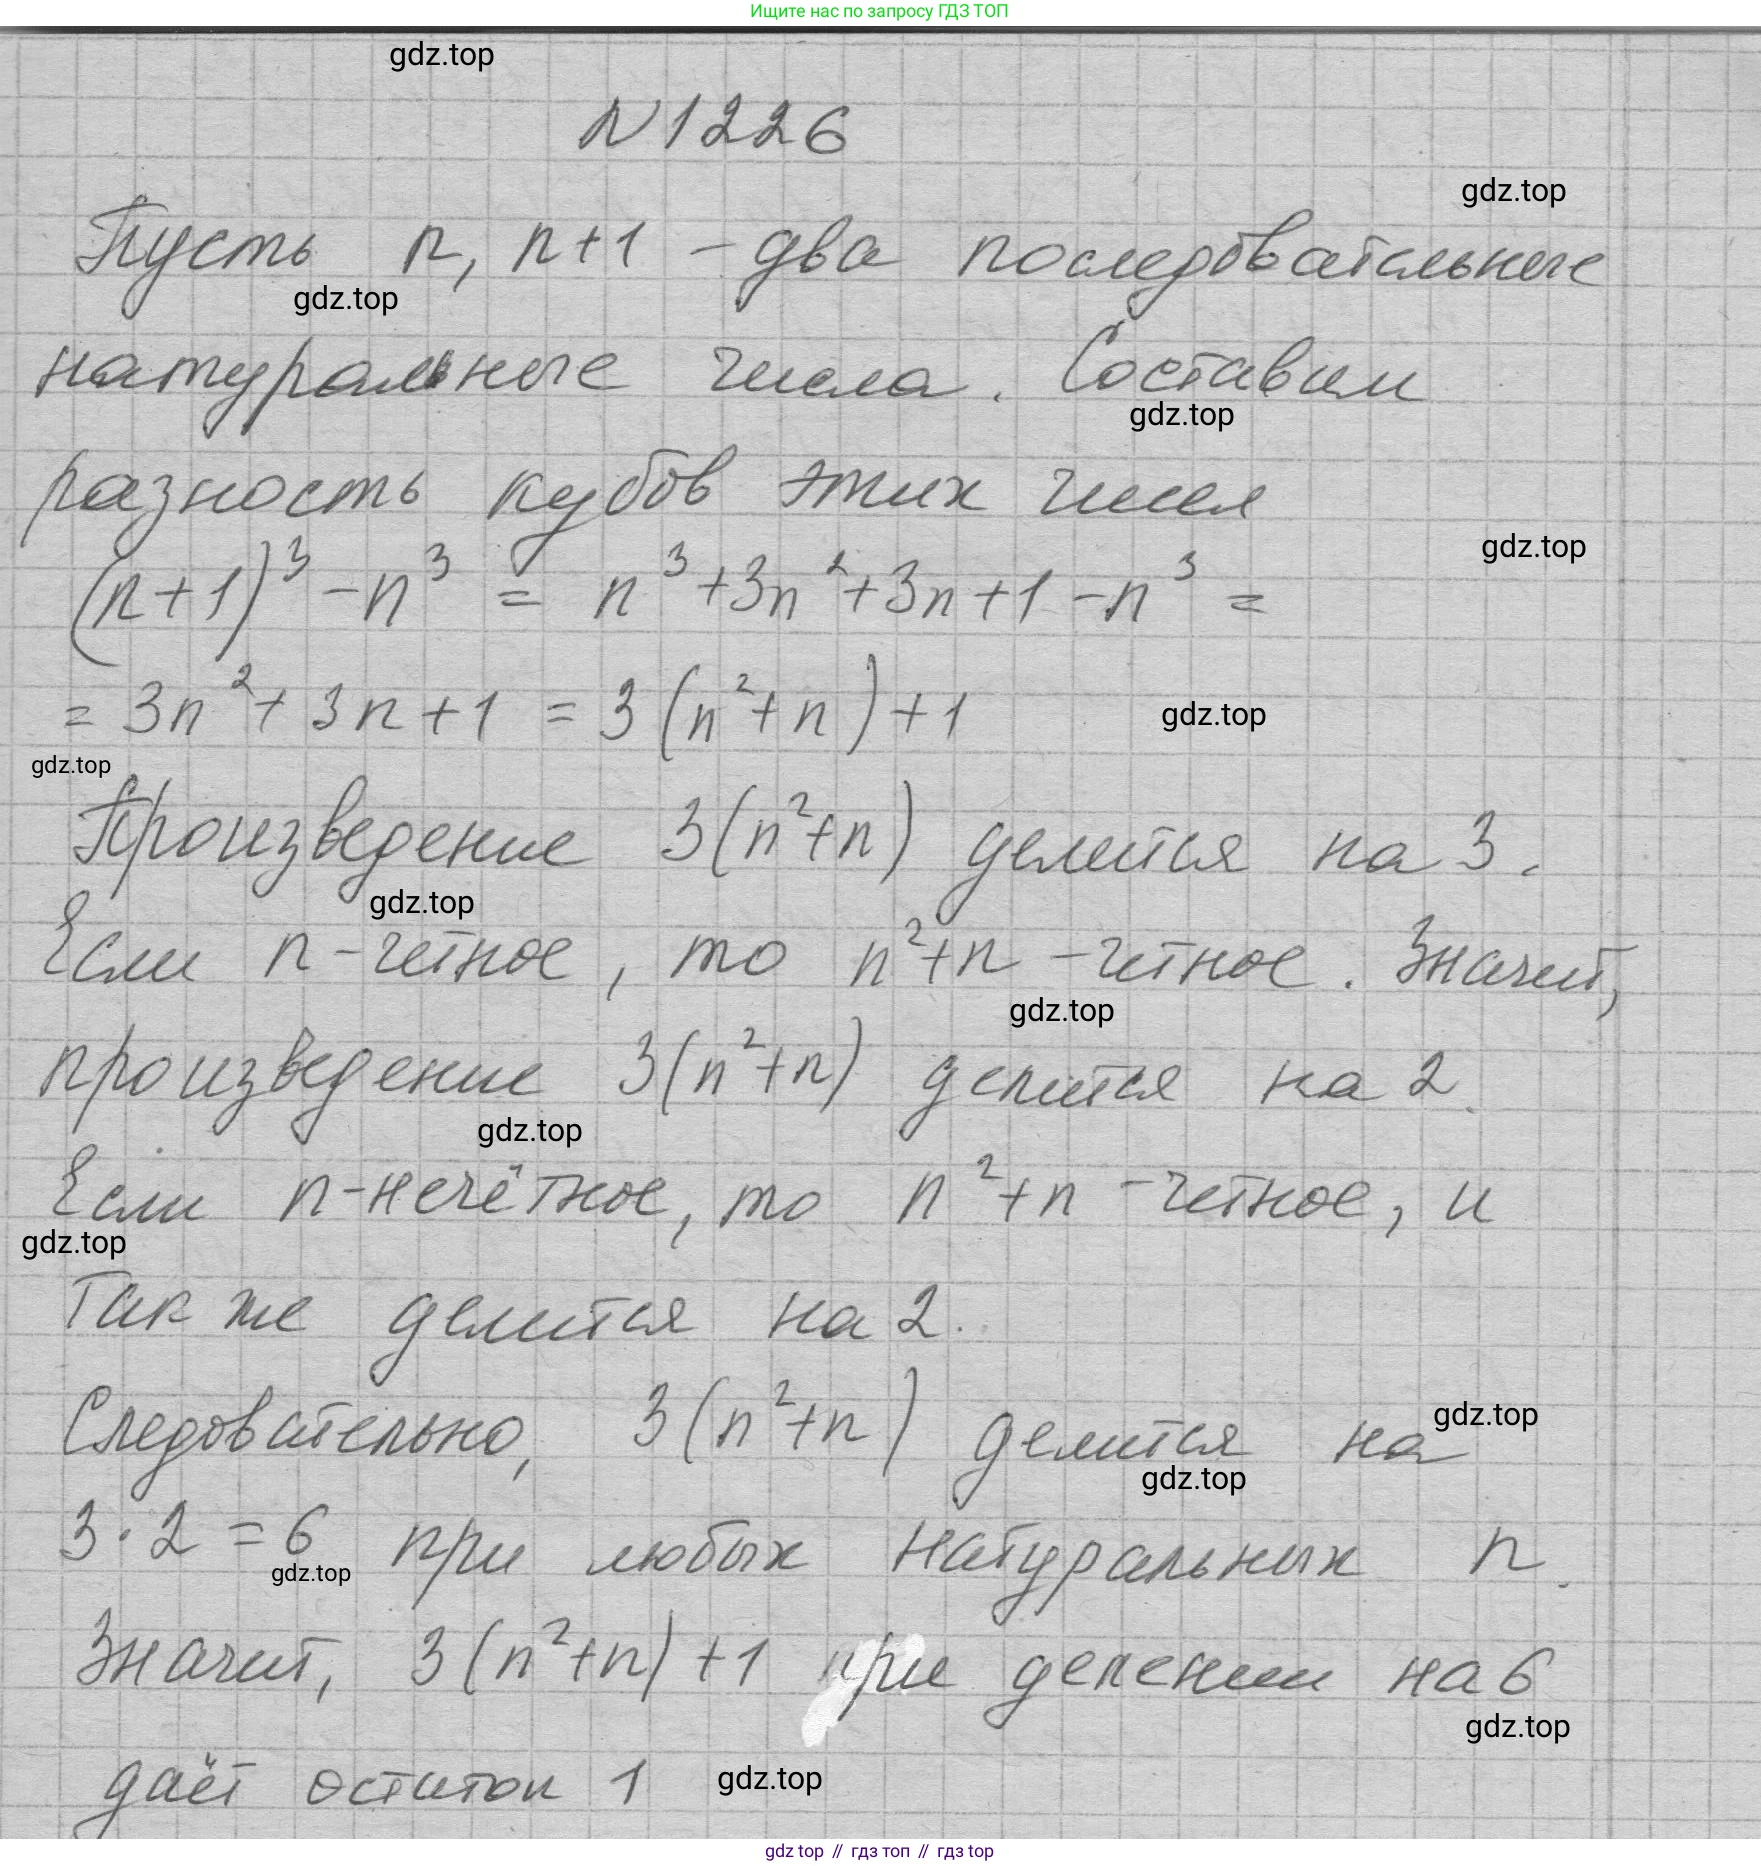 Ищите нас по запросу ГДЗ ТОП
gdz.top
N 1226
gdz.top
Пусть n, n+1 – два последовательные
gdz.top
натуральные числа. Составим
gdz.top
разность кубов этих чисел
gdz.top
(n+1)³ – n³ = n³ + 3n² + 3n + 1 – n³ =
= 3n² + 3n + 1 = 3(n² + n) + 1
gdz.top
gdz.top
Произведение 3(n²+n) делится на 3.
gdz.top
Если n – четное, то n²+n – четное. Значит,
gdz.top
произведение 3(n²+n) делится на 2.
gdz.top
Если n – нечётное, то n²+n – четное, и
gdz.top
так же делится на 2.
gdz.top
Следовательно, 3(n²+n) делится на
gdz.top
3·2 = 6 при любых натуральных n.
gdz.top
Значит, 3(n²+n)+1 при делении на 6
gdz.top
даёт остаток 1
gdz.top
gdz top // гдз топ // гдз top